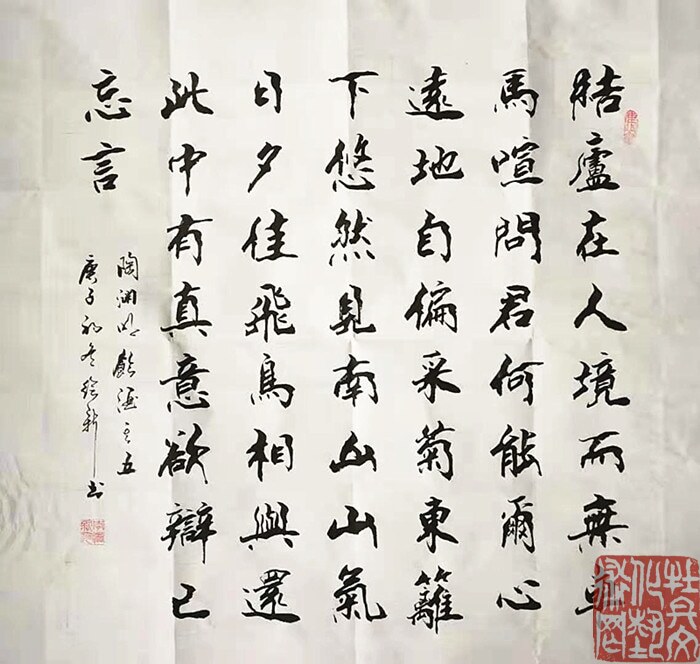 結廬在人境而無車
馬喧問君何能爾心
遠地自偏采菊東籬
下悠然見南山山氣
日夕佳飛鳥相與還
此中有真意欲辯已
忘言
陶渊明飲酒之五
庚子初冬 新书